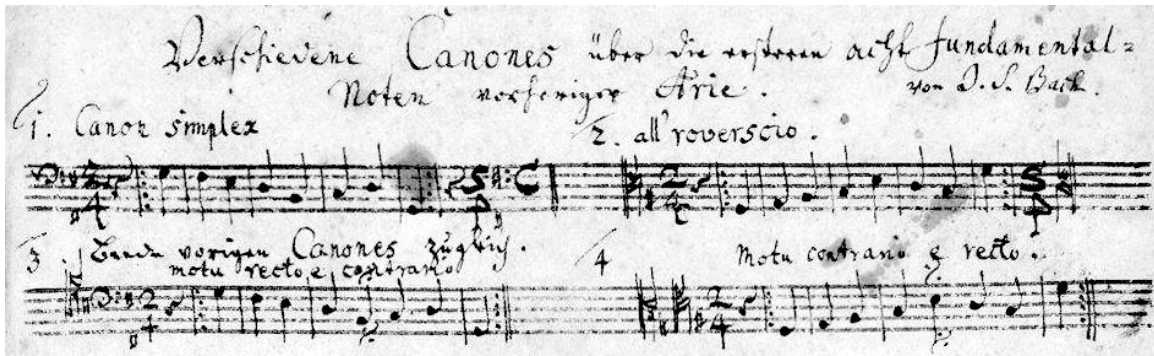 Verschiedene Canones über die ersteren acht Fundamental=
Noten voriger Arie. von J. S. Bach.
1. Canon simplex
2. all' roverscio.
3. Beede vorigen Canones zugleich.
motu recto e contrario
4 motu contrario e recto.